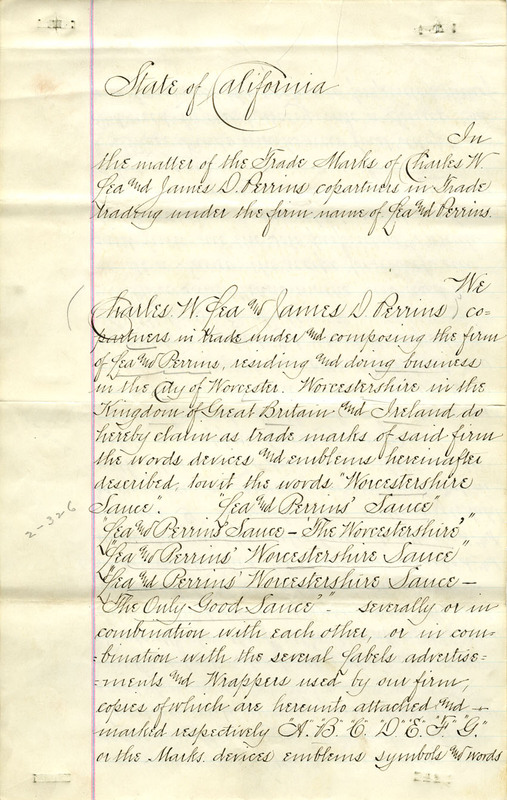 State of California
In
the matter of the Trade Marks of Charles W
Lea and James D. Perrins copartners in Trade
trading under the firm name of Lea and Perrins.
We
(Charles. W. Lea and James D. Perrins) co-
partners in trade under and composing the firm
of Lea and Perrins, residing and doing business
in the City of Worcester. Worcestershire in the
Kingdom of Great Britain and Ireland do
hereby claim as trade marks of said firm
the words devices and emblems hereinafter
described, towit the words "Worcestershire
Sauce". "Lea and Perrins' Sauce"
"Lea and Perrins' Sauce – The Worcestershire"
"Lea and Perrins' Worcestershire Sauce"
"Lea and Perrins' Worcestershire Sauce –
"The Only Good Sauce'". severally or in
combination with each other, or in com-
-bination with the several labels advertise-
-ments and Wrappers used by our firm,
copies of which are hereunto attached and –
marked respectively "A" "B" "C" "D" "E" "F" "G."
or the Marks. devices emblems symbols and words
2-326